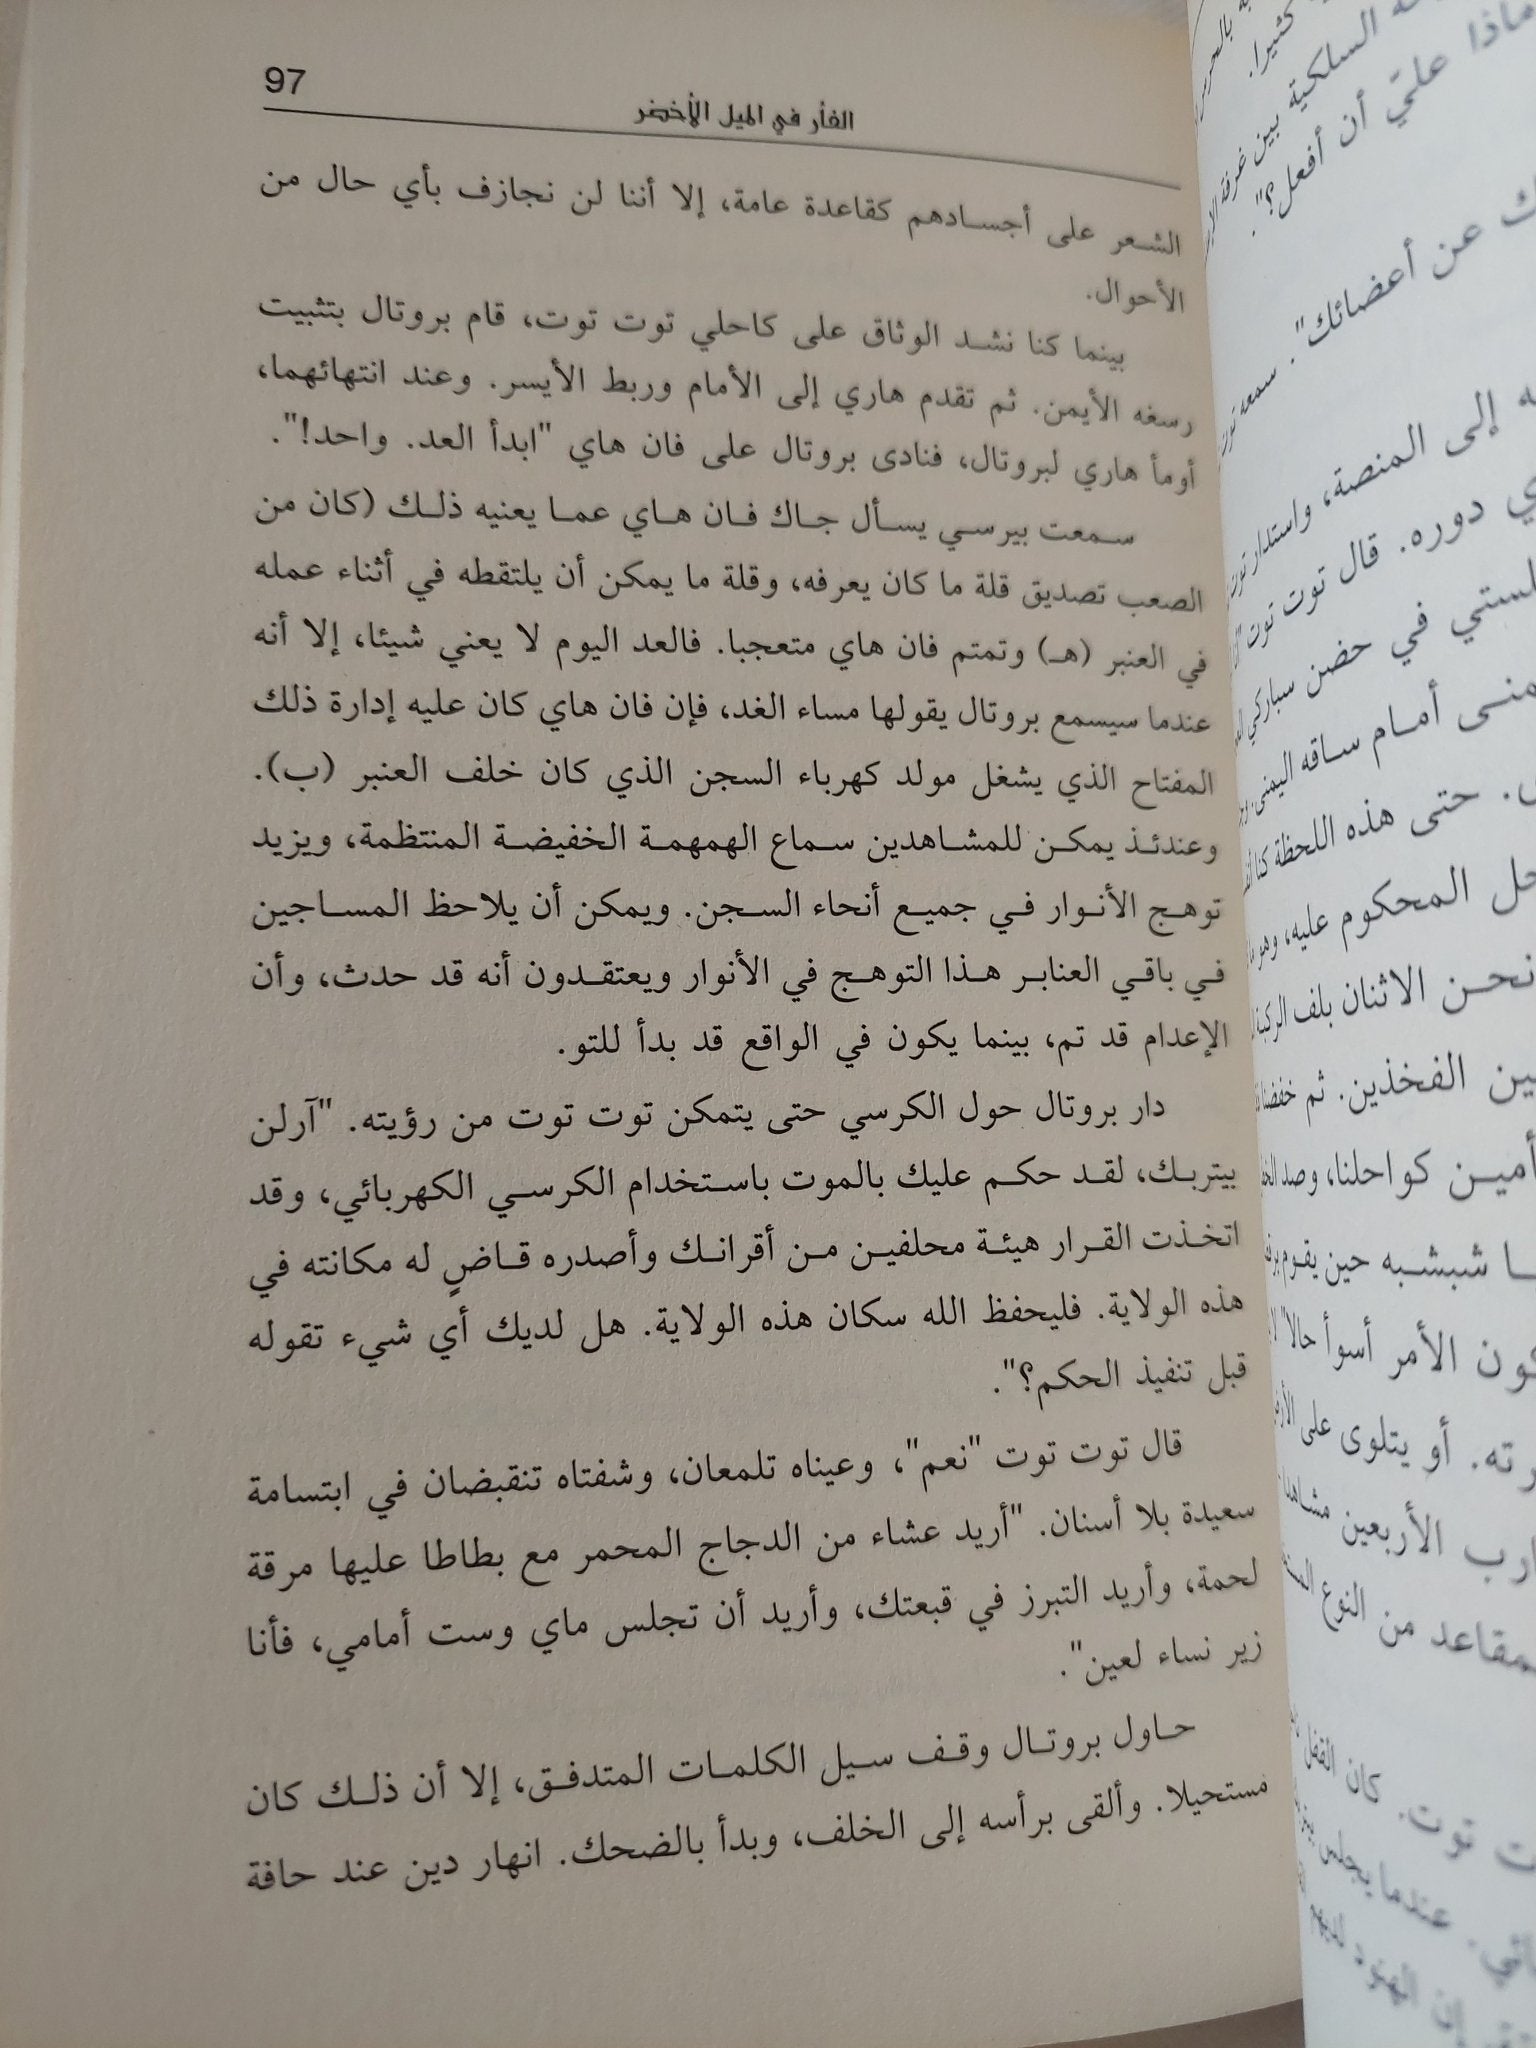 97
الفأر في الميل الأخضر
الشعر على أجسادهم كقاعدة عامة، إلا أننا لن نجازف بأي حال من
الأحوال.
بينما كنا نشد الوثاق على كاحلي توت توت، قام بروتال بتثبيت
رسغه الأيمن. ثم تقدم هاري إلى الأمام وربط الأيسر. وعند انتهائهما،
أومأ هاري لبروتال، فنادى بروتال على فان هاي "ابدأ العد. واحد!".
سمعت بيرسي يسأل جاك فان هاي عما يعنيه ذلك (كان من
الصعب تصديق قلة ما كان يعرفه، وقلة ما يمكن أن يلتقطه في أثناء عمله
في العنبر (هـ) وتمتم فان هاي متعجبا. فالعد اليوم لا يعني شيئا، إلا أنه
عندما سيسمع بروتال يقولها مساء الغد، فإن فان هاي كان عليه إدارة ذلك
المفتاح الذي يشغل مولد كهرباء السجن الذي كان خلف العنبر (ب).
وعندئذ يمكن للمشاهدين سماع الهمهمة الخفيضة المنتظمة، ويزيد
توهج الأنوار في جميع أنحاء السجن. ويمكن أن يلاحظ المساجين
في باقي العنابر هذا التوهج في الأنوار ويعتقدون أنه قد حدث، وأن
الإعدام قد تم، بينما يكون في الواقع قد بدأ للتو.
دار بروتال حول الكرسي حتى يتمكن توت توت من رؤيته. "آرلن
بيتربك، لقد حكم عليك بالموت باستخدام الكرسي الكهربائي، وقد
اتخذت القرار هيئة محلفين من أقرانك وأصدره قاضٍ له مكانته في
هذه الولاية. فليحفظ الله سكان هذه الولاية. هل لديك أي شيء تقوله
قبل تنفيذ الحكم؟".
قال توت توت "نعم"، وعيناه تلمعان، وشفتاه تنقبضان في ابتسامة
سعيدة بلا أسنان. "أريد عشاء من الدجاج المحمر مع بطاطا عليها مرقة
لحمة، وأريد التبرز في قبعتك، وأريد أن تجلس ماي وست أمامي، فأنا
زير نساء لعين".
حاول بروتال وقف سيل الكلمات المتدفق، إلا أن ذلك كان
مستحيلا. وألقى برأسه إلى الخلف، وبدأ بالضحك. انهار دين عند حافة
كثيرا.
السلكية بين غرفة
ماذا عليّ أن أفعل؟".
عن أعضائك". سمعه توت
إلى المنصة، واستدار توت
دوره. قال توت توت
في حضن سباركي
أمام ساقه اليمنى.
حتى هذه اللحظة كنا
المحكوم عليه، وهو
نحن الاثنان بلف
الفخذين. ثم خفضنا
كواحلنا، وصد
شبشبه حين يقوم
الأمر أسوأ حالا"
أو يتلوى على
الأربعين
من النوع
كان القفل
توت.
عندما يجلس